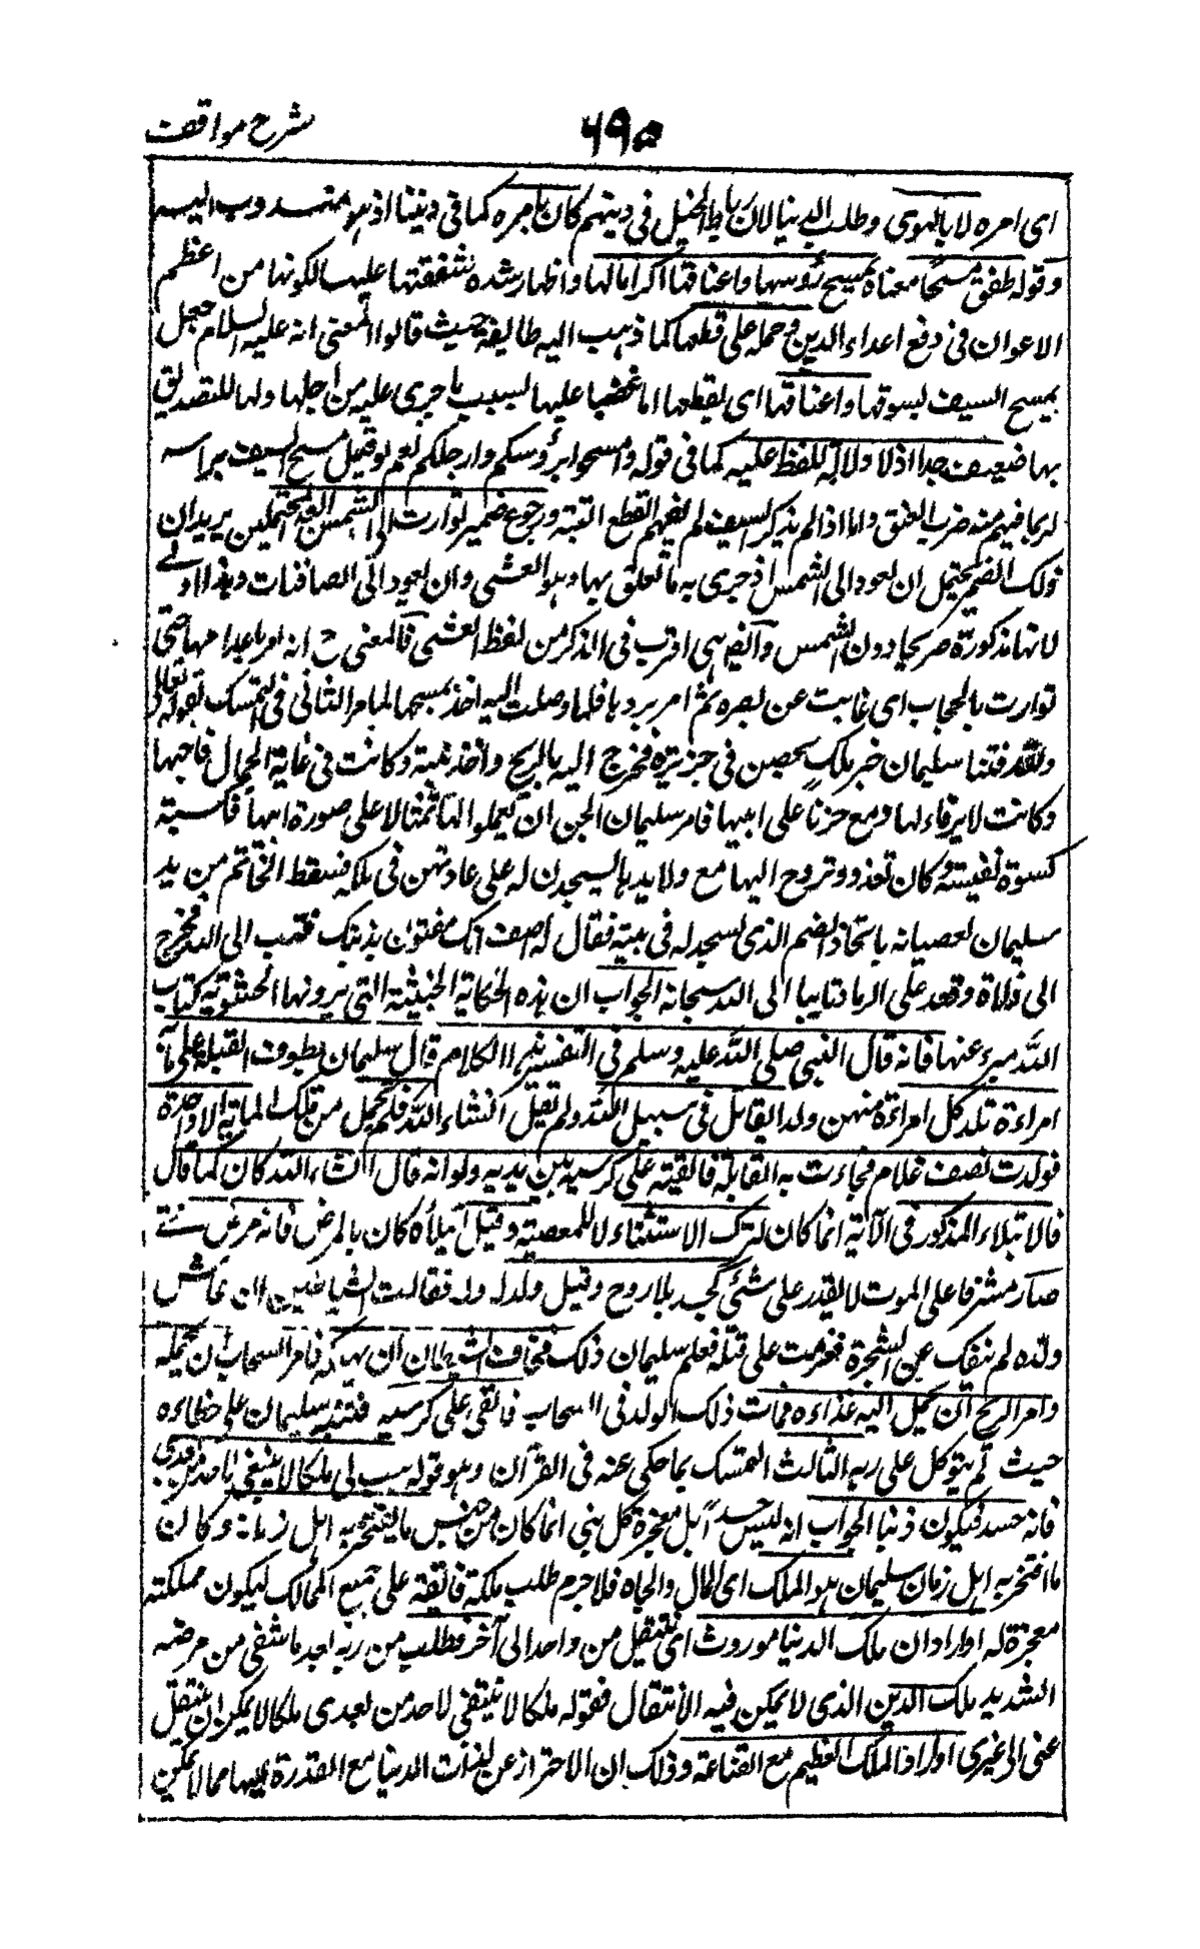 شرح مواقف
٦٩٥
اى امره لا بالهوى وطلب الدنيا لان رباط الخيل فى دينهم كان بامره كما فى ديننا اذ هو مندوب اليه
وقوله فطفق مسحًا معناه يمسح رؤسها واعناقها اكراما لها واظهار شدة شفقتها عليها لكونها من اعظم
الاعوان فى دفع اعداء الدين وحمله على قطعها كما ذهب اليه طايفة حيث قالوا المعنى انه عليه السلام جعل
يمسح السيف بسوقها واعناقها اى يقطعها اما غضبا عليها بسبب ما جرى عليه من اجلها واما للتصدق
بها ضعيف جدا اذ لا دلالة للفظ عليه كما فى قوله وامسحوا برؤسكم وارجلكم نعم لو قيل مسح السيف براسه
لربما فهم منه ضرب العنق واما اذا لم يذكر السيف لم يفهم القطع البتة ورجوع ضمير توارت الى الشمس المحتملين يريد ان
ذلك الضمير يحتمل ان يعود الى الشمس اذ جرى به ما تعلق بها وهو العشى وان يعود الى الصافنات وهذا اولى
لانها مذكورة صريحا دون الشمس وايضا هى اقرب فى الذكر من لفظ العشى فالمعنى ح انه امر باعدائها حتى
توارت بالحجاب اى غابت عن بصره ثم امر بردها فلما وصلت اليه اخذ يمسحها لما مر الثانى فى التمسك بقوله تعالى
ولقد فتنا سليمان خبر ملك يحصن فى جزيرة فخرج اليه بالريح واخذ بنته وكانت فى غاية الجمال فاحبها
وكانت لا يرقاء لها دمع حزنا على ابيها فامر سليمان الجن ان يعملوا لها تمثالا على صورة ابيها فاكسته
كسوة نفيسة وكان تغدو وتروح اليها مع ولايدها يسجدن له على عادتهن فى ملكه فسقط الخاتم من يد
سليمان لعصيانه باتخاذ الصنم الذى يسجد له فى بيته فقال له اصف انك مفتون بذنبك فتب الى الله فخرج
الى فلاة وقعد على الرماد تايبا الى الله سبحانه الجواب ان هذه الحكاية الخبيثة التى يرونها الحشوية كتاب
الله مبرء عنها فانه قال النبى صلى الله عليه وسلم فى التفسير الكلام قال سليمان يطوف القيلة على مأة
امراءة تلد كل امراءة منهن ولدا يقاتل فى سبيل الله ولم يقل انشاء الله فلم تحمل من تلك الماية الا واحدة
فولدت نصف غلام فجاءت به القابلة فالقيته على كرسيه بين يديه ولو انه قال انشاء الله كان كما قال
فالابتلاء المذكور فى الآية انما كان لترك الاستثناء لا للمعصية وقيل ابتلاه كان بالمرض فانه مرض حتى
صار مشرفا على الموت لا يقدر على شئ كجسد بلا روح وقيل ولد له ولد فقالت الشياطين ان عاش
ولده لم ننفك عن السخرة فعزمت على قتله فعلم سليمان ذلك فخاف الشيطان ان يهلكه فامر السحاب ان تحمله
وامر الريح ان تحمل اليه غذاءه فمات ذلك الولد فى السحاب فالقى على كرسيه فتنبه سليمان على خطاءه
حيث لم يتوكل على ربه الثالث التمسك بما حكى عنه فى القرآن وهو قوله هب لى ملكا لا ينبغى لاحد من بعدى
فانه حسد فيكون ذنبا الجواب انه ليس حسدًا بل معجزة كل نبى انما كان من جنس ما يفتخر به اهل زمانه وكان
ما افتخر به اهل زمان سليمان هو الملك اى المال والجاه فلا جرم طلب ملكة فائقة على جميع الممالك ليكون مملكته
معجزة له او اراد ان ملك الدنيا موروث اى ينتقل من واحد الى آخر فطلب من ربه بعد ما شفى من مرضه
الشديد ملك الدين الذى لا يمكن فيه الانتقال فقوله ملكا لا ينبغى لاحد من بعدى ملكا لا يمكن ان ينتقل
عنى الى غيرى او اراد الملك العظيم مع القناعة وذلك ان الاحتراز عن لذات الدنيا مع القدرة عليها مما لا يمكن